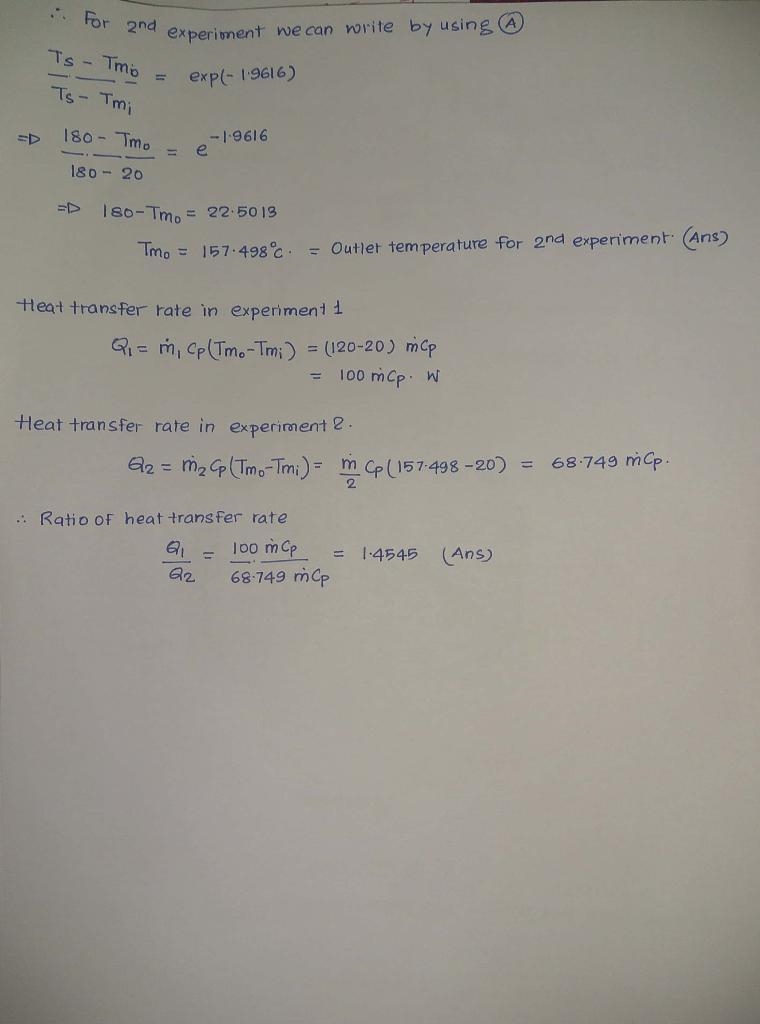 ∴ For 2nd experiment we can write by using Ⓐ
Ts - Tmo / Ts - Tmi = exp(-1.9616)
=> 180 - Tmo / 180 - 20 = e^-1.9616
=> 180-Tmo = 22.5013
Tmo = 157.498°C. = Outlet temperature for 2nd experiment. (Ans)
Heat transfer rate in experiment 1
Q1 = ṁ1 Cp(Tmo-Tmi) = (120-20) ṁCp
= 100 ṁCp. W
Heat transfer rate in experiment 2.
Q2 = ṁ2 Cp(Tmo-Tmi) = ṁ/2 Cp(157.498-20) = 68.749 ṁCp.
∴ Ratio of heat transfer rate
Q1/Q2 = 100 ṁCp / 68.749 ṁCp = 1.4545 (Ans)